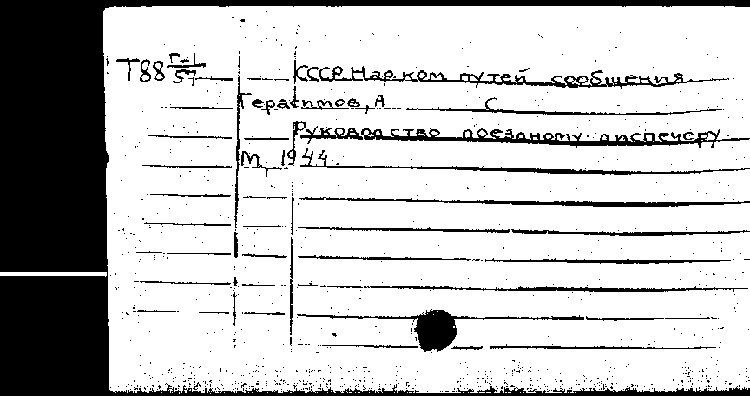 Т88 Г-1/57 СССР. Нар. ком путей сообщения.
Герасимов, А С
Руководство поездному диспечеру
М, 1944.